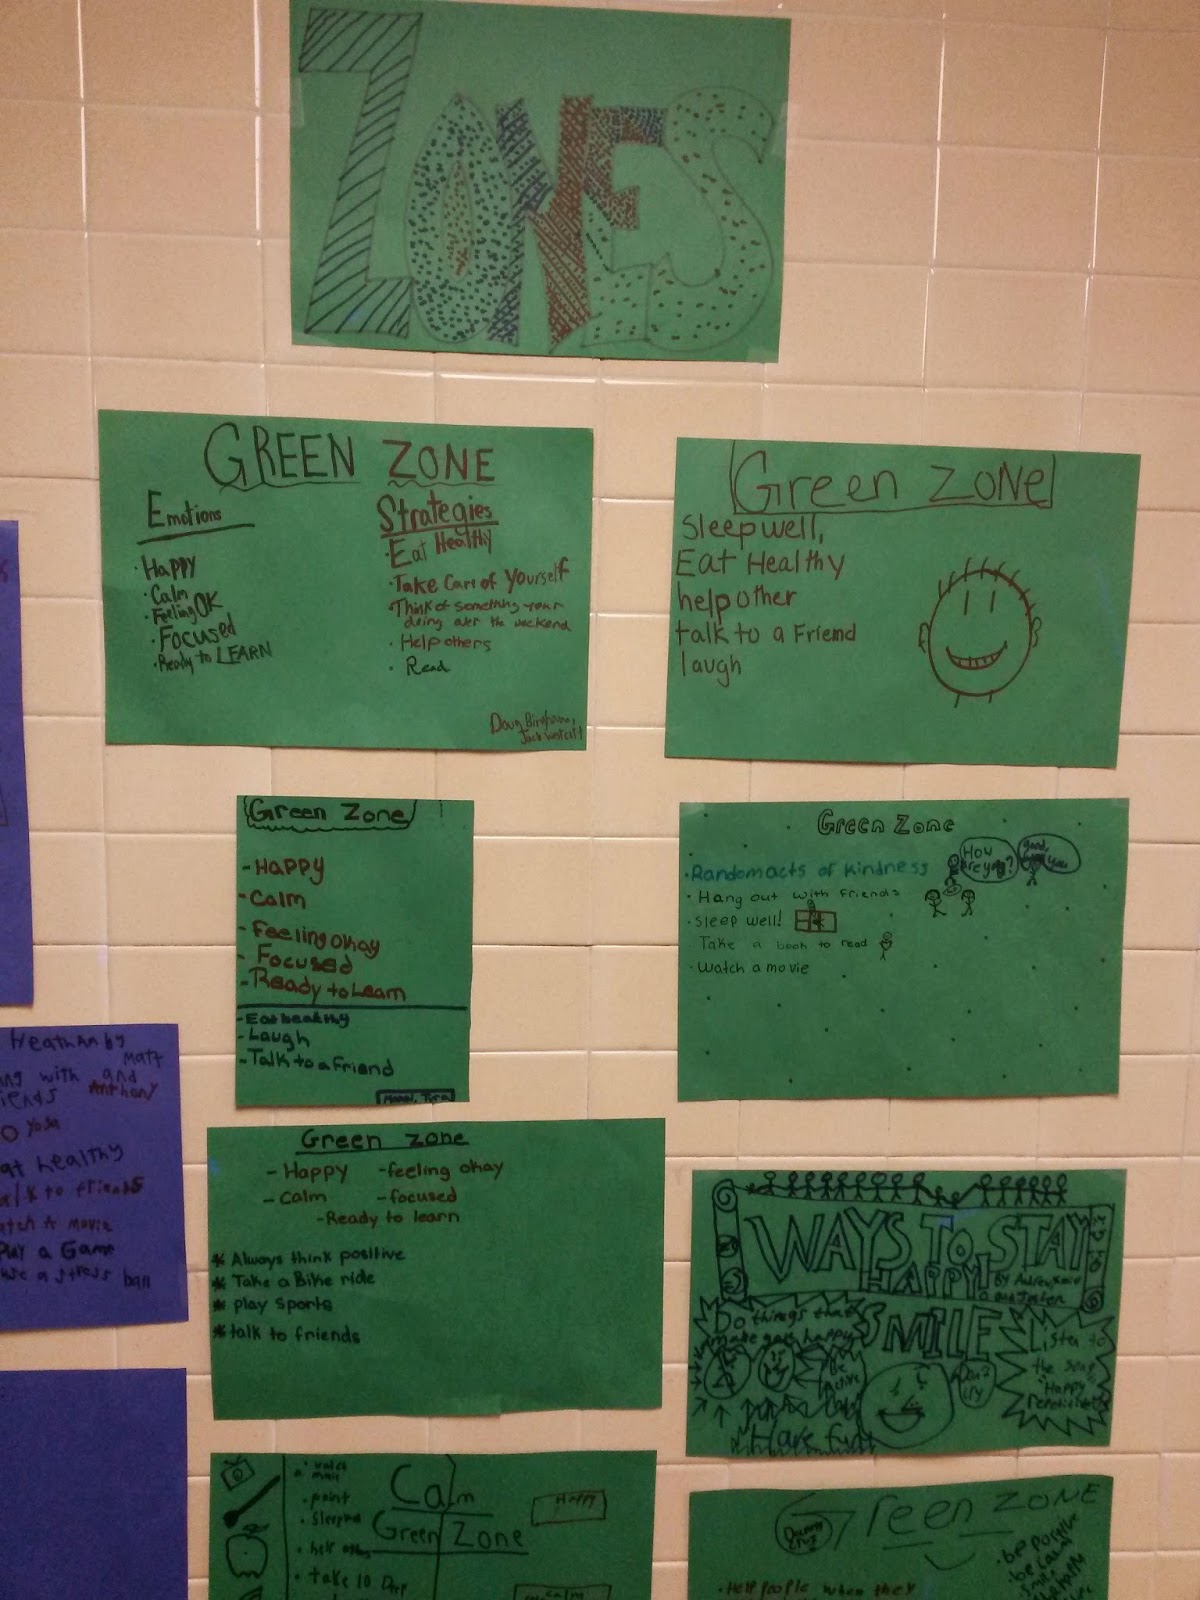 ZONES
GREEN ZONE
Emotions
· Happy
· Calm
· Feeling OK
· Focused
· Ready to LEARN
Strategies
· Eat Healthy
· Take Care of Yourself
· Think of something your
doing over the weekend
· Help others
· Read
Doug
Jack
Green Zone
Sleep well,
Eat Healthy
help other
talk to a Friend
laugh
Green Zone
- Happy
- Calm
- Feeling Okay
- Focused
- Ready to Learn
- Eat healthy
- Laugh
- Talk to a Friend
Green Zone
· Random acts of kindness
How
are you?
good,
you
· Hang out with friends
· Sleep well!
Take a book to read
· Watch a movie
Green Zone
- Happy - feeling okay
- Calm - focused
- Ready to learn
* Always think positive
* Take a Bike ride
* Play Sports
* talk to friends
WAYS TO STAY
HAPPY!
By
SMILE
Do things that
make you happy
Be
Active
Listen to
the song
"Happy
Have fun
Calm
Green Zone
Happy
Calm
· watch
movie
· paint
· Sleep
· help others
· take 10 Deep
Green ZONE
· be positive
Smile
· Help people when they
by
Matt
and
Anthony
with
yoga
healthy
to friends
A movie
Play a Game
a stress ball